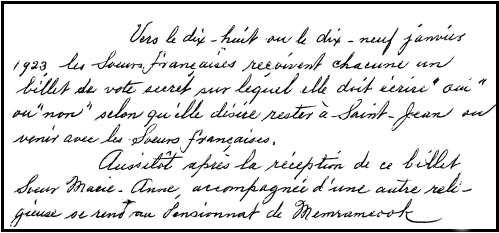 Vers le dix-huit ou le dix-neuf janvier
1923 les Soeurs françaises reçoivent chacune un
billet de vote secret sur lequel elle doit écrire "oui"
ou "non" selon qu'elle désire rester à Saint-Jean ou
venir avec les Soeurs françaises.
Aussitôt après la réception de ce billet
Soeur Marie-Anne, accompagnée d'une autre reli-
gieuse se rend au Pensionnat de Memramcook